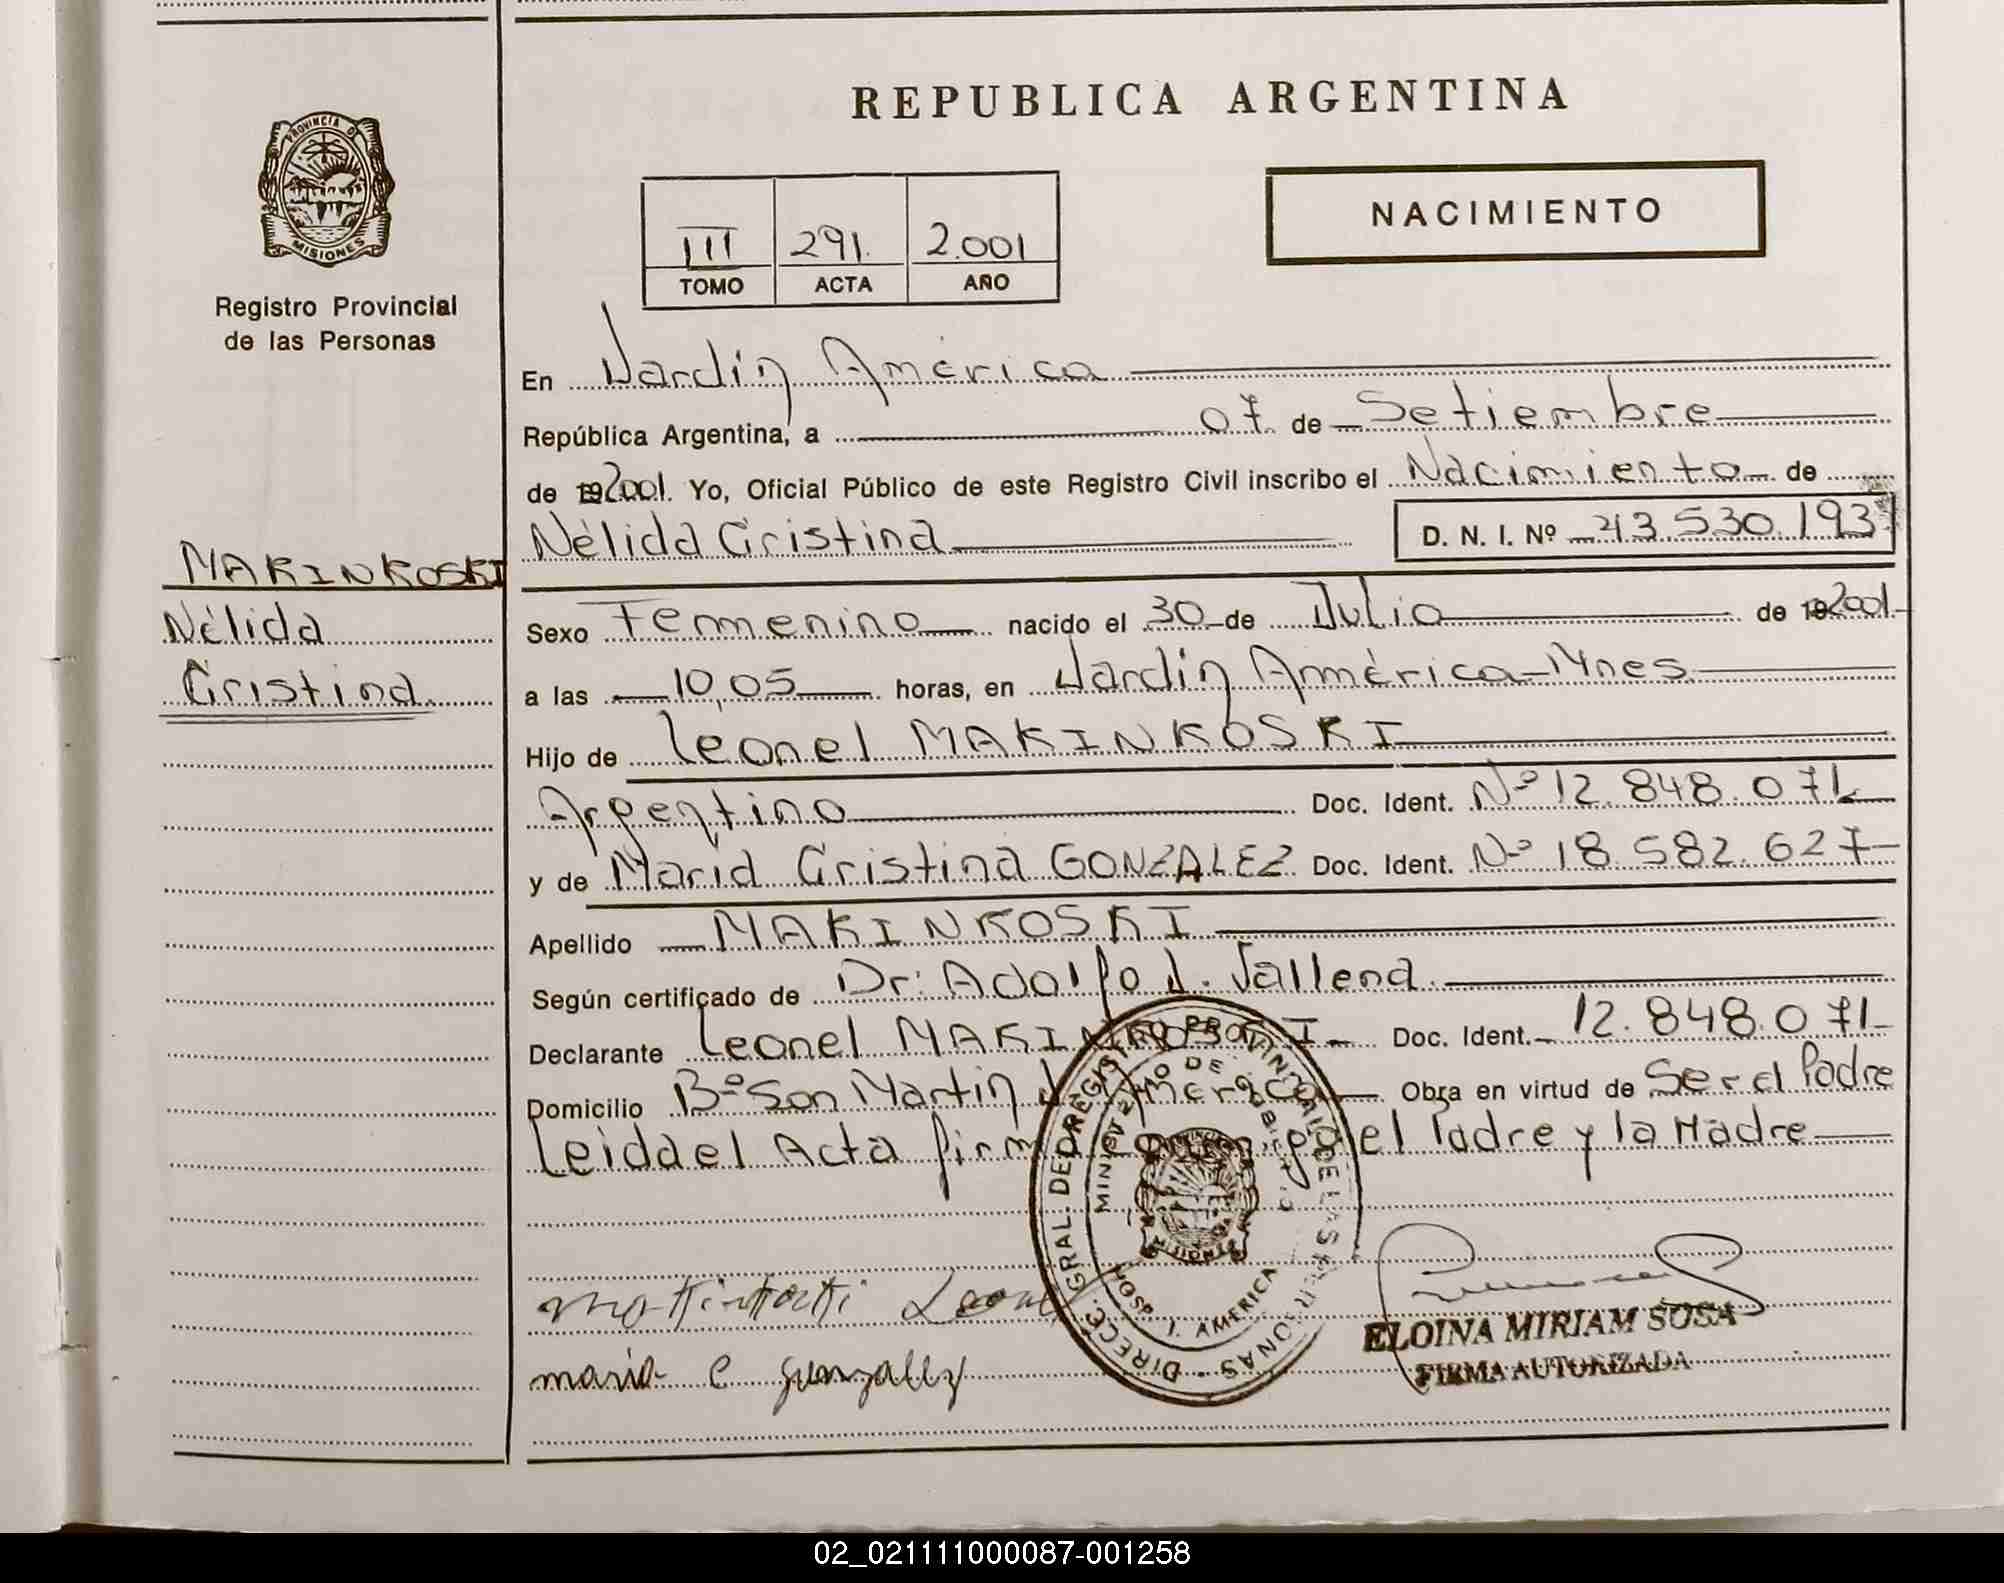 REPUBLICA ARGENTINA
PROVINCIA DE
MISIONES
Registro Provincial
de las Personas
NACIMIENTO
III 291. 2.001
TOMO ACTA AÑO
En Jardín América
República Argentina, a 07 de Setiembre
de 192001. Yo, Oficial Público de este Registro Civil inscribo el Nacimiento de
Nélida Cristina D. N. I. Nº 43.530.193
MAKINKOSKI
Nélida
Cristina
Sexo Femenino nacido el 30 de Julio de 192001
a las 10,05 horas, en Jardín América-Mnes.
Hijo de Leonel MAKINKOSKI
Argentino Doc. Ident. Nº 12.848.071
y de María Cristina GONZALEZ Doc. Ident. Nº 18.582.627
Apellido MAKINKOSKI
Según certificado de Dr: Adolfo J. Vallena
Declarante Leonel MAKINKOSKI Doc. Ident. 12.848.071
Domicilio Bº San Martín J. América Obra en virtud de Ser el Padre
Leida el Acta firman el Padre y la Madre
DIRECC. GRAL. DEL REGISTRO PROVINCIAL DE LAS PERSONAS
MINISTERIO DE GOBIERNO
HOSP. J. AMERICA
Makinkoski Leonel
maria c gonzalez
ELOINA MIRIAM SOSA
FIRMA AUTORIZADA
02_021111000087-001258